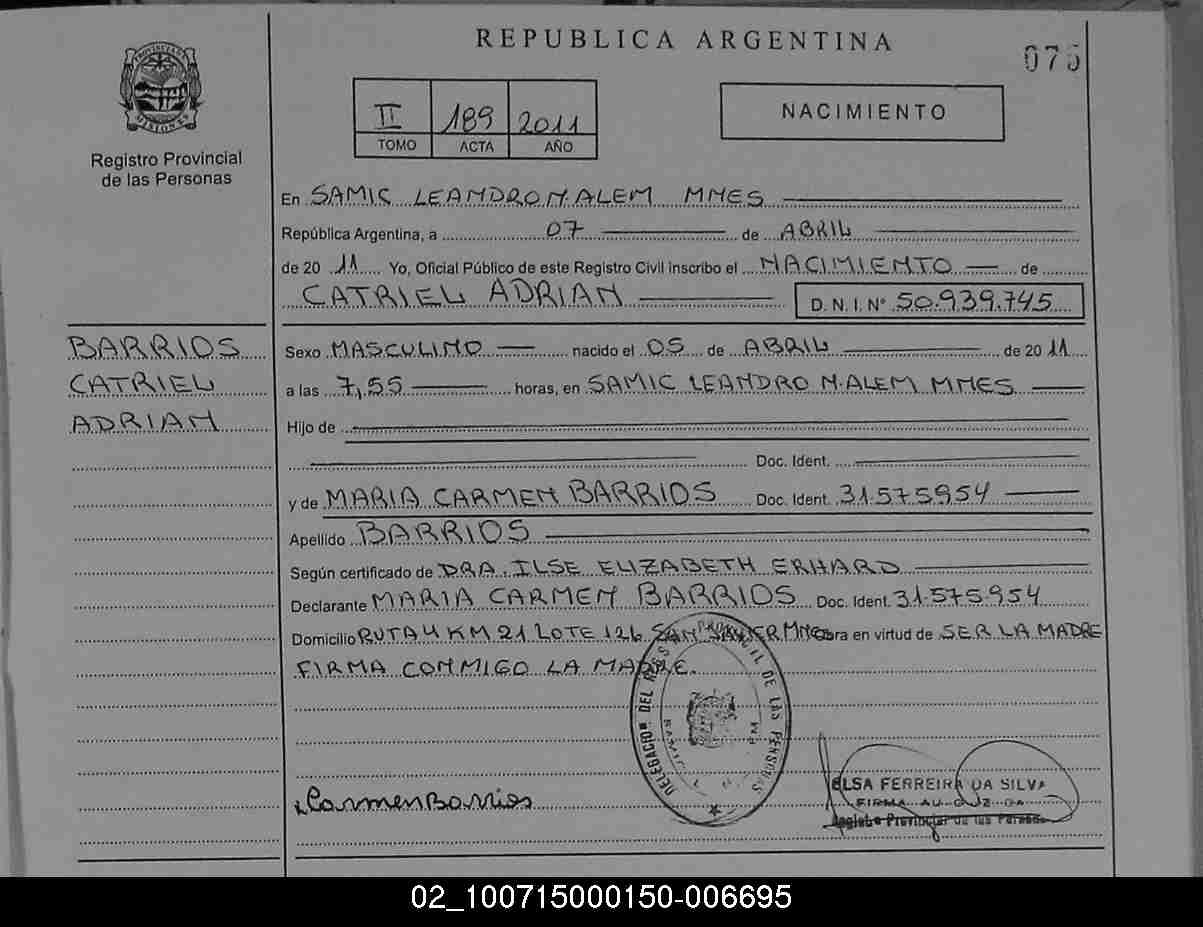 REPUBLICA ARGENTINA
075
PROVINCIA DE
MISIONES
Registro Provincial
de las Personas
II 189 2011
TOMO ACTA AÑO
NACIMIENTO
En SAMIC LEANDRO N. ALEM MNES
República Argentina, a 07 de ABRIL
de 2011 Yo, Oficial Público de este Registro Civil inscribo el NACIMIENTO de
CATRIEL ADRIAN D. N. I. N° 50.939.745
BARRIOS
CATRIEL
ADRIAN
Sexo MASCULINO nacido el 05 de ABRIL de 2011
a las 7,55 horas, en SAMIC LEANDRO N. ALEM MNES
Hijo de
Doc. Ident.
y de MARIA CARMEN BARRIOS Doc. Ident. 31.575.954
Apellido BARRIOS
Según certificado de DRA. ILSE ELIZABETH ERHARD
Declarante MARIA CARMEN BARRIOS Doc. Ident. 31.575.954
Domicilio RUTA 4 KM 21 LOTE 126 SAN JAVIER MNES obra en virtud de SER LA MADRE
FIRMA CONMIGO LA MADRE.
DELEGACION DEL DE LAS PERSONAS
Carmen Barrios
ELSA FERREIRA DA SILVA
FIRMA
Registro Provincial de las Personas
02_100715000150-006695